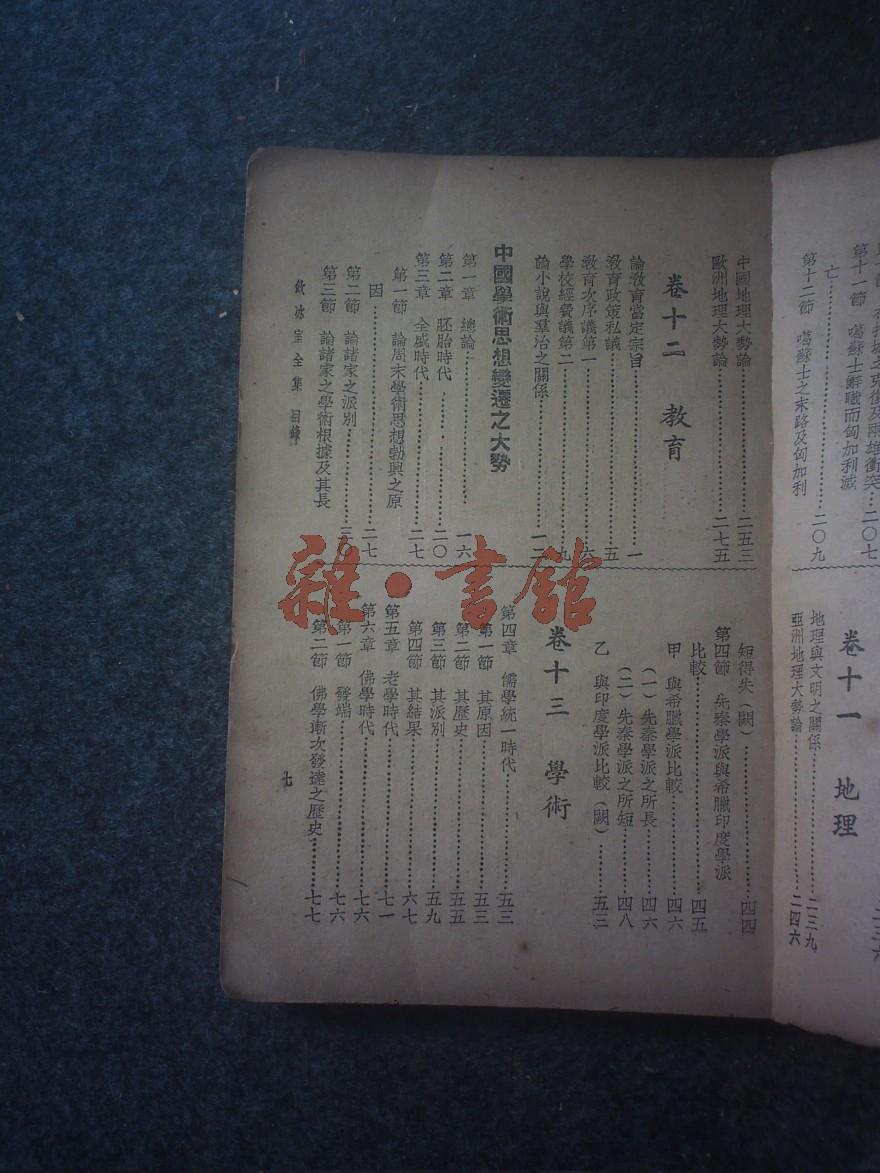 第十一節
噶蘇士辭職而匈加利滅
亡……二〇九
第十二節 噶蘇士之末路及匈加利
卷十一 地理
地理與文明之關係……二三九
亞洲地理大勢論……二四六
中國地理大勢論……二五三
歐洲地理大勢論……二七五
卷十二 教育
論教育當定宗旨……一
教育政策私議……五
教育次序議第一……六
學校經費議第二……九
論小說與羣治之關係……一二
中國學術思想變遷之大勢
第一章 總論……一六
第二章 胚胎時代……二〇
第三章 全盛時代……二七
第一節 論周末學術思想勃興之原
因……二七
第二節 論諸家之派別……三〇
第三節 論諸家之學術根據及其長
飲冰室全集 目錄
短得失(闕)……四四
第四節 先秦學派與希臘印度學派
比較……四五
甲 與希臘學派比較……四六
(一)先秦學派之所長……四六
(二)先秦學派之所短……四八
乙 與印度學派比較(闕)……五三
卷十三 學術
第四章 儒學統一時代……五三
第一節 其原因……五三
第二節 其歷史……五五
第三節 其派別……五九
第四節 其結果……六七
第五章 老學時代……七一
第六章 佛學時代……七六
第一節 發端……七六
第二節 佛學漸次發達之歷史……七七
七
雜·書館